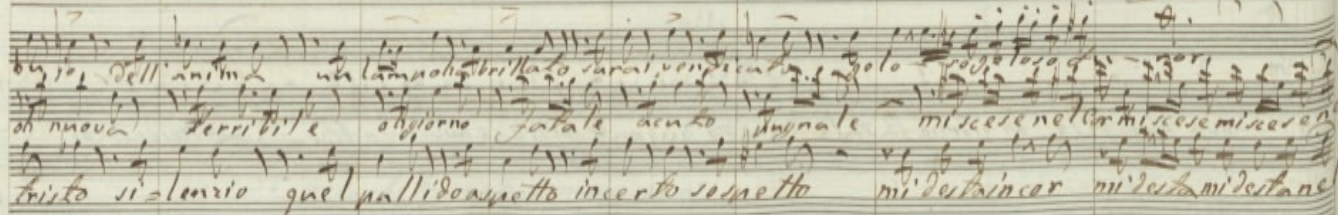 bujo dell'anima un lampo ha brillato sarai vendicato geloso geloso
oh nuova terribile oh giorno fatale acuto pugnale mi scese nel cor mi scese mi scese n
tristo si=lenzio quel pallido aspetto incerto sospetto mi desta in cor mi desta mi desta nel